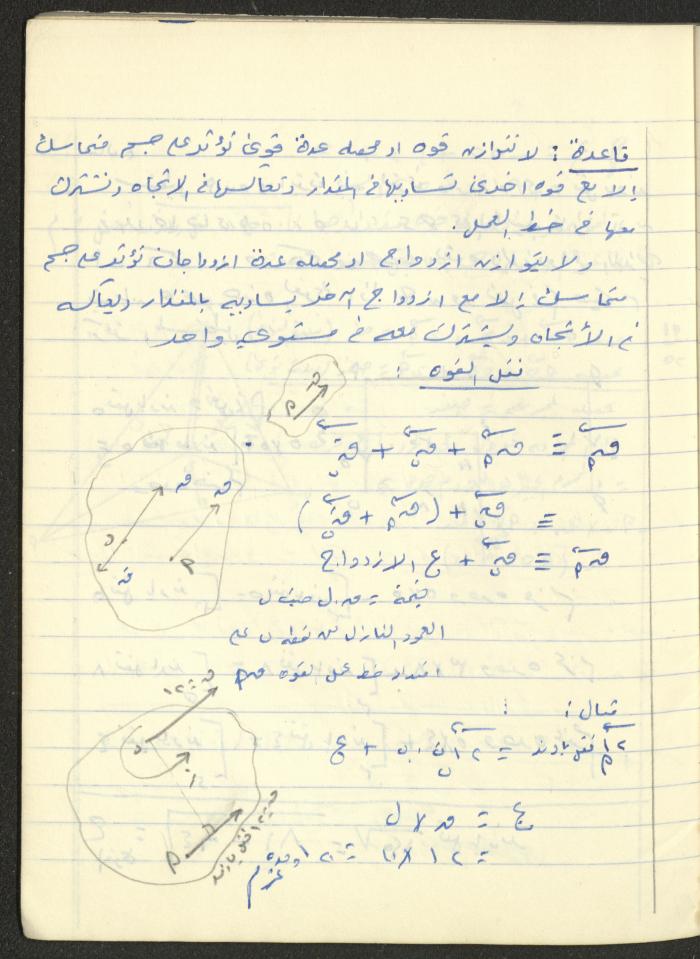 قاعدة : لا تتوازن قوه او محصله عدة قوى تؤثر على جسم متماسك
إلا مع قوه اخرى تساويها في المقدار وتعاكسها في الاتجاه وتشترك
معها في خط العمل .
ولا يتوازن ازدواج او محصله عدة ازدواجات تؤثر على جسم
متماسك إلا مع ازدواج آخر يساويه بالمقدار ويعاكسه
في الأتجاه ويشترك معه في مستوي واحد
نقل القوه :
ق م
ق م ≡ ق م + ق ن + ق ن
≡ ق ن + ( ق م + ق ن )
ق م ≡ ق ن + ع الازدواج
ق ق
ن م
ق
قيمة = ق . ل حيث ل
العمود النازل من نقطه ن على
امتداد خط عمل القوه ق م
ق = ١٢
مثال :
ن
م
ع = ق × ل